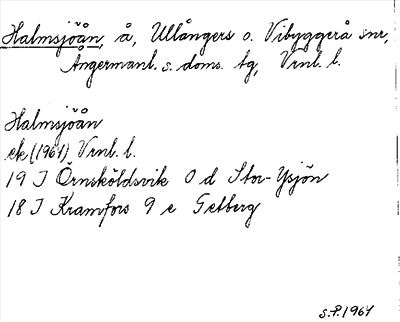 Halmsjöån, å, Ullångers o. Vibyggerå snr,
Ångermanl. s. doms. tg, Vrnl. l.
Halmsjöån
ek (1967) Vrnl. l.
19 J Örnsköldsvik 0 d Stor-Ysjön
18 J Kramfors 9 e Getberg
S.P. 1967